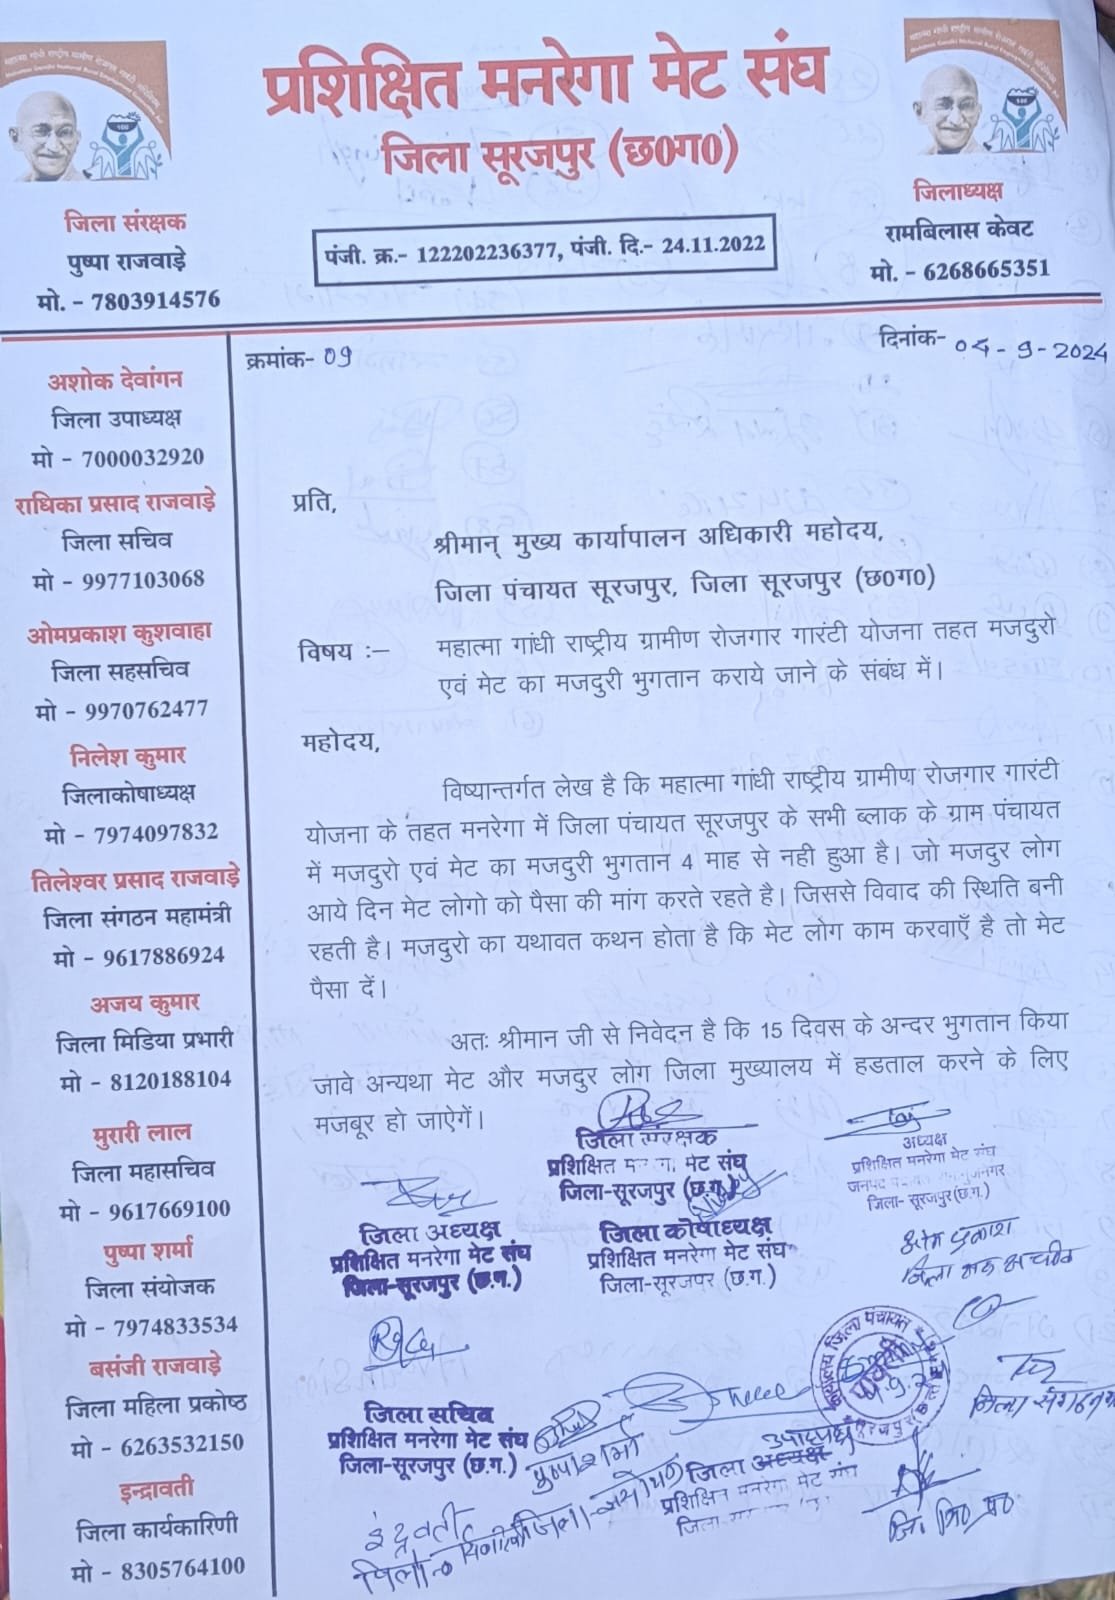 प्रशिक्षित मनरेगा मेट संघ
जिला सूरजपुर (छ0ग0)
जिला संरक्षक
पुष्पा राजवाड़े
मो. - 7803914576
पंजी. क्र.- 122202236377, पंजी. दि.- 24.11.2022
जिलाध्यक्ष
रामबिलास केवट
मो. - 6268665351
अशोक देवांगन
जिला उपाध्यक्ष
मो - 7000032920
राधिका प्रसाद राजवाड़े
जिला सचिव
मो - 9977103068
ओमप्रकाश कुशवाहा
जिला सहसचिव
मो - 9970762477
निलेश कुमार
जिलाकोषाध्यक्ष
मो - 7974097832
तिलेश्वर प्रसाद राजवाड़े
जिला संगठन महामंत्री
मो - 9617886924
अजय कुमार
जिला मिडिया प्रभारी
मो - 8120188104
मुरारी लाल
जिला महासचिव
मो - 9617669100
पुष्पा शर्मा
जिला संयोजक
मो - 7974833534
बसंजी राजवाड़े
जिला महिला प्रकोष्ठ
मो - 6263532150
इन्द्रावती
जिला कार्यकारिणी
मो - 8305764100
क्रमांक- 09
दिनांक- 04-9-2024
प्रति,
श्रीमान् मुख्य कार्यापालन अधिकारी महोदय,
जिला पंचायत सूरजपुर, जिला सूरजपुर (छ0ग0)
विषय :– महात्मा गांधी राष्ट्रीय ग्रामीण रोजगार गारंटी योजना तहत मजदुरो
एवं मेट का मजदुरी भुगतान कराये जाने के संबंध में।
महोदय,
विष्यान्तर्गत लेख है कि महात्मा गांधी राष्ट्रीय ग्रामीण रोजगार गारंटी
योजना के तहत मनरेगा में जिला पंचायत सूरजपुर के सभी ब्लाक के ग्राम पंचायत
में मजदुरो एवं मेट का मजदुरी भुगतान 4 माह से नही हुआ है। जो मजदुर लोग
आये दिन मेट लोगो को पैसा की मांग करते रहते है। जिससे विवाद की स्थिति बनी
रहती है। मजदुरो का यथावत कथन होता है कि मेट लोग काम करवाएँ है तो मेट
पैसा दें।
अतः श्रीमान जी से निवेदन है कि 15 दिवस के अन्दर भुगतान किया
जावे अन्यथा मेट और मजदुर लोग जिला मुख्यालय में हडताल करने के लिए
मजबूर हो जाऐगें।
जिला संरक्षक
प्रशिक्षित मनरेगा मेट संघ
जिला-सूरजपुर (छ.ग.)
अध्यक्ष
प्रशिक्षित मनरेगा मेट संघ
जनपद
जिला- सूरजपुर(छ.ग.)
जिला अध्यक्ष
प्रशिक्षित मनरेगा मेट संघ
जिला-सूरजपुर (छ.ग.)
जिला कोषाध्यक्ष
प्रशिक्षित मनरेगा मेट संघ
जिला-सूरजपर (छ.ग.)
ओम प्रकाश
जिला सह सचिव
जिला सचिव
प्रशिक्षित मनरेगा मेट संघ
जिला-सूरजपुर (छ.ग.)
पुष्पा शर्मा
जिला
इंद्रवती
कार्यालय जिला पंचायत
पावती
उपाध्यक्ष
जिला अध्यक्ष
प्रशिक्षित मनरेगा मेट संघ
जिला
जिला संगठन
जि. मि0 प्र0